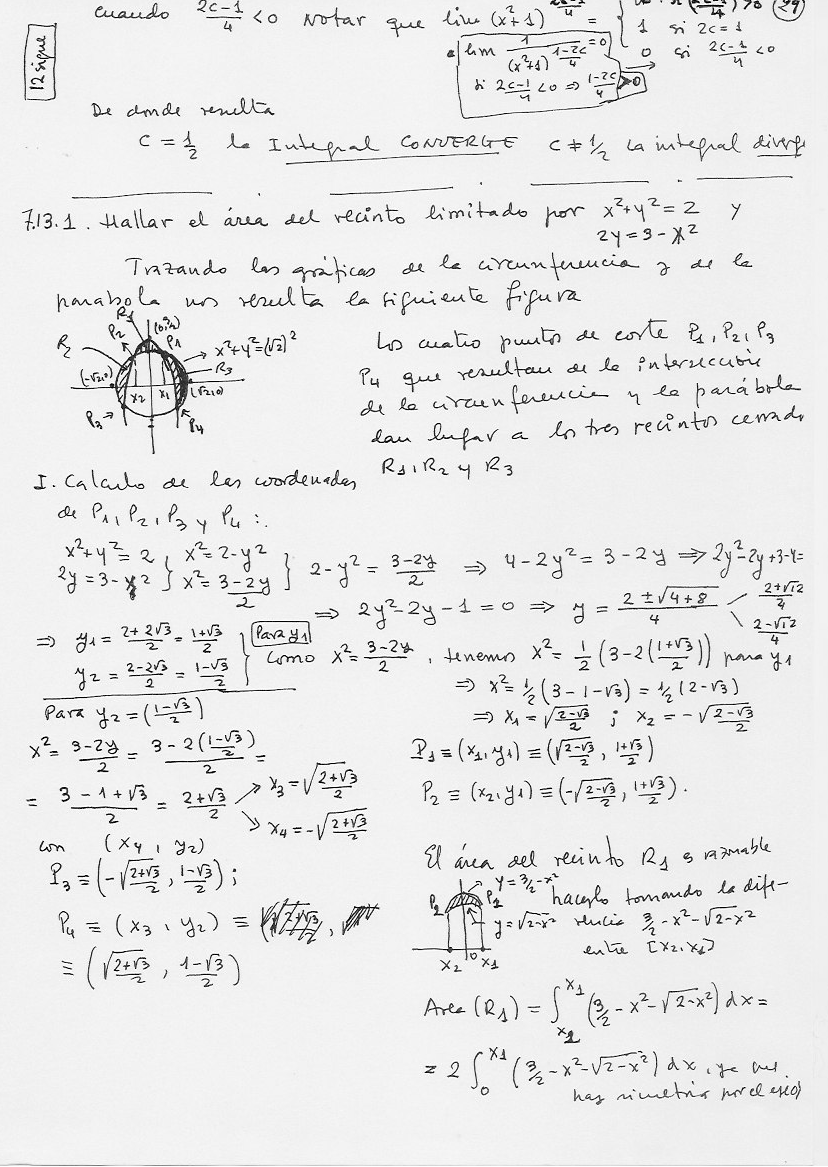 cuando (2c-1)/4 < 0 Notar que lim (x²+1) =
1 si 2c=1
0 si (2c-1)/4 < 0
29
• lim 1/(x²+1)^((1-2c)/4) = 0
si (2c-1)/4 < 0 ⇒ (1-2c)/4 > 0
12 sigue
De donde resulta
C = 1/2 la Integral CONVERGE C ≠ 1/2 La integral diverge
7.13.1. Hallar el área del recinto limitado por x²+y²=2 y
2y = 3 - x²
Trazando las gráficas de la circunferencia y de la
parábola nos resulta la siguiente figura
R1
P2 (0,3/2) P1
R2 x²+y²=(√2)²
R3
(-√2,0) (√2,0)
x2 x1
P3 P4
Los cuatro puntos de corte P1, P2, P3
P4 que resultan de la intersección
de la circunferencia y la parábola
dan lugar a los tres recintos cerrado
R1, R2 y R3
I. Calculo de las coordenadas
de P1, P2, P3 y P4 :.
x²+y² = 2 } x² = 2-y² } 2-y² = (3-2y)/2 ⇒ 4-2y² = 3-2y ⇒ 2y²-2y+3-4=
2y = 3-x² } x² = (3-2y)/2
⇒ 2y²-2y-1=0 ⇒ y = (2±√(4+8))/4 (2+√12)/4
(2-√12)/4
⇒ y1 = (2+2√3)/2 = (1+√3)/2
y2 = (2-2√3)/2 = (1-√3)/2
Para y1
Como x² = (3-2y)/2, tenemos x² = 1/2 (3-2((1+√3)/2)) para y1
⇒ x² = 1/2 (3-1-√3) = 1/2 (2-√3)
⇒ x1 = √((2-√3)/2) ; x2 = -√((2-√3)/2)
P1 ≡ (x1, y1) ≡ (√((2-√3)/2), (1+√3)/2)
P2 ≡ (x2, y1) ≡ (-√((2-√3)/2), (1+√3)/2).
Para y2 = ((1-√3)/2)
x² = (3-2y)/2 = (3-2((1-√3)/2))/2 =
= (3-1+√3)/2 = (2+√3)/2 x3 = √((2+√3)/2)
x4 = -√((2+√3)/2)
con (x4, y2)
P3 ≡ (-√((2+√3)/2), (1-√3)/2) ;
P4 ≡ (x3, y2) ≡
≡ (√((2+√3)/2), (1-√3)/2)
El área del recinto R1 es razonable
y = 3/2 - x² hacerlo tomando la dife-
P2 P1
y = √(2-x²) rencia 3/2 - x² - √(2-x²)
entre [x2, x1]
x2 0 x1
Area (R1) = ∫_{x2}^{x1} (3/2 - x² - √(2-x²)) dx =
= 2 ∫_0^{x1} (3/2 - x² - √(2-x²)) dx, ya que
hay simetría por el eje